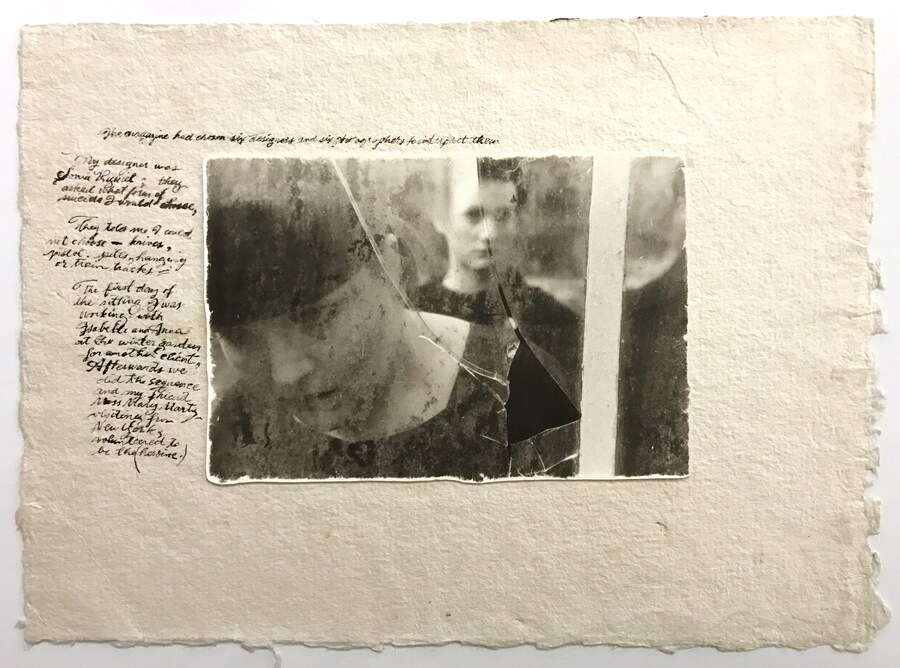 The magazine had chosen six designers and six photographers to interpret them
My designer was
Sonia Rykiel; they
asked what form of
suicide I would choose,
They told me I could
not choose — knives,
pistol, pills, hanging
or train tracks —
The first day of
the sitting I was
working with
Isabelle and Anna
at the winter garden
for another client,
Afterwards we
did the sequence
and my friend
Miss Mary Martz
visiting from
New York,
volunteered to
be the (heroine.)